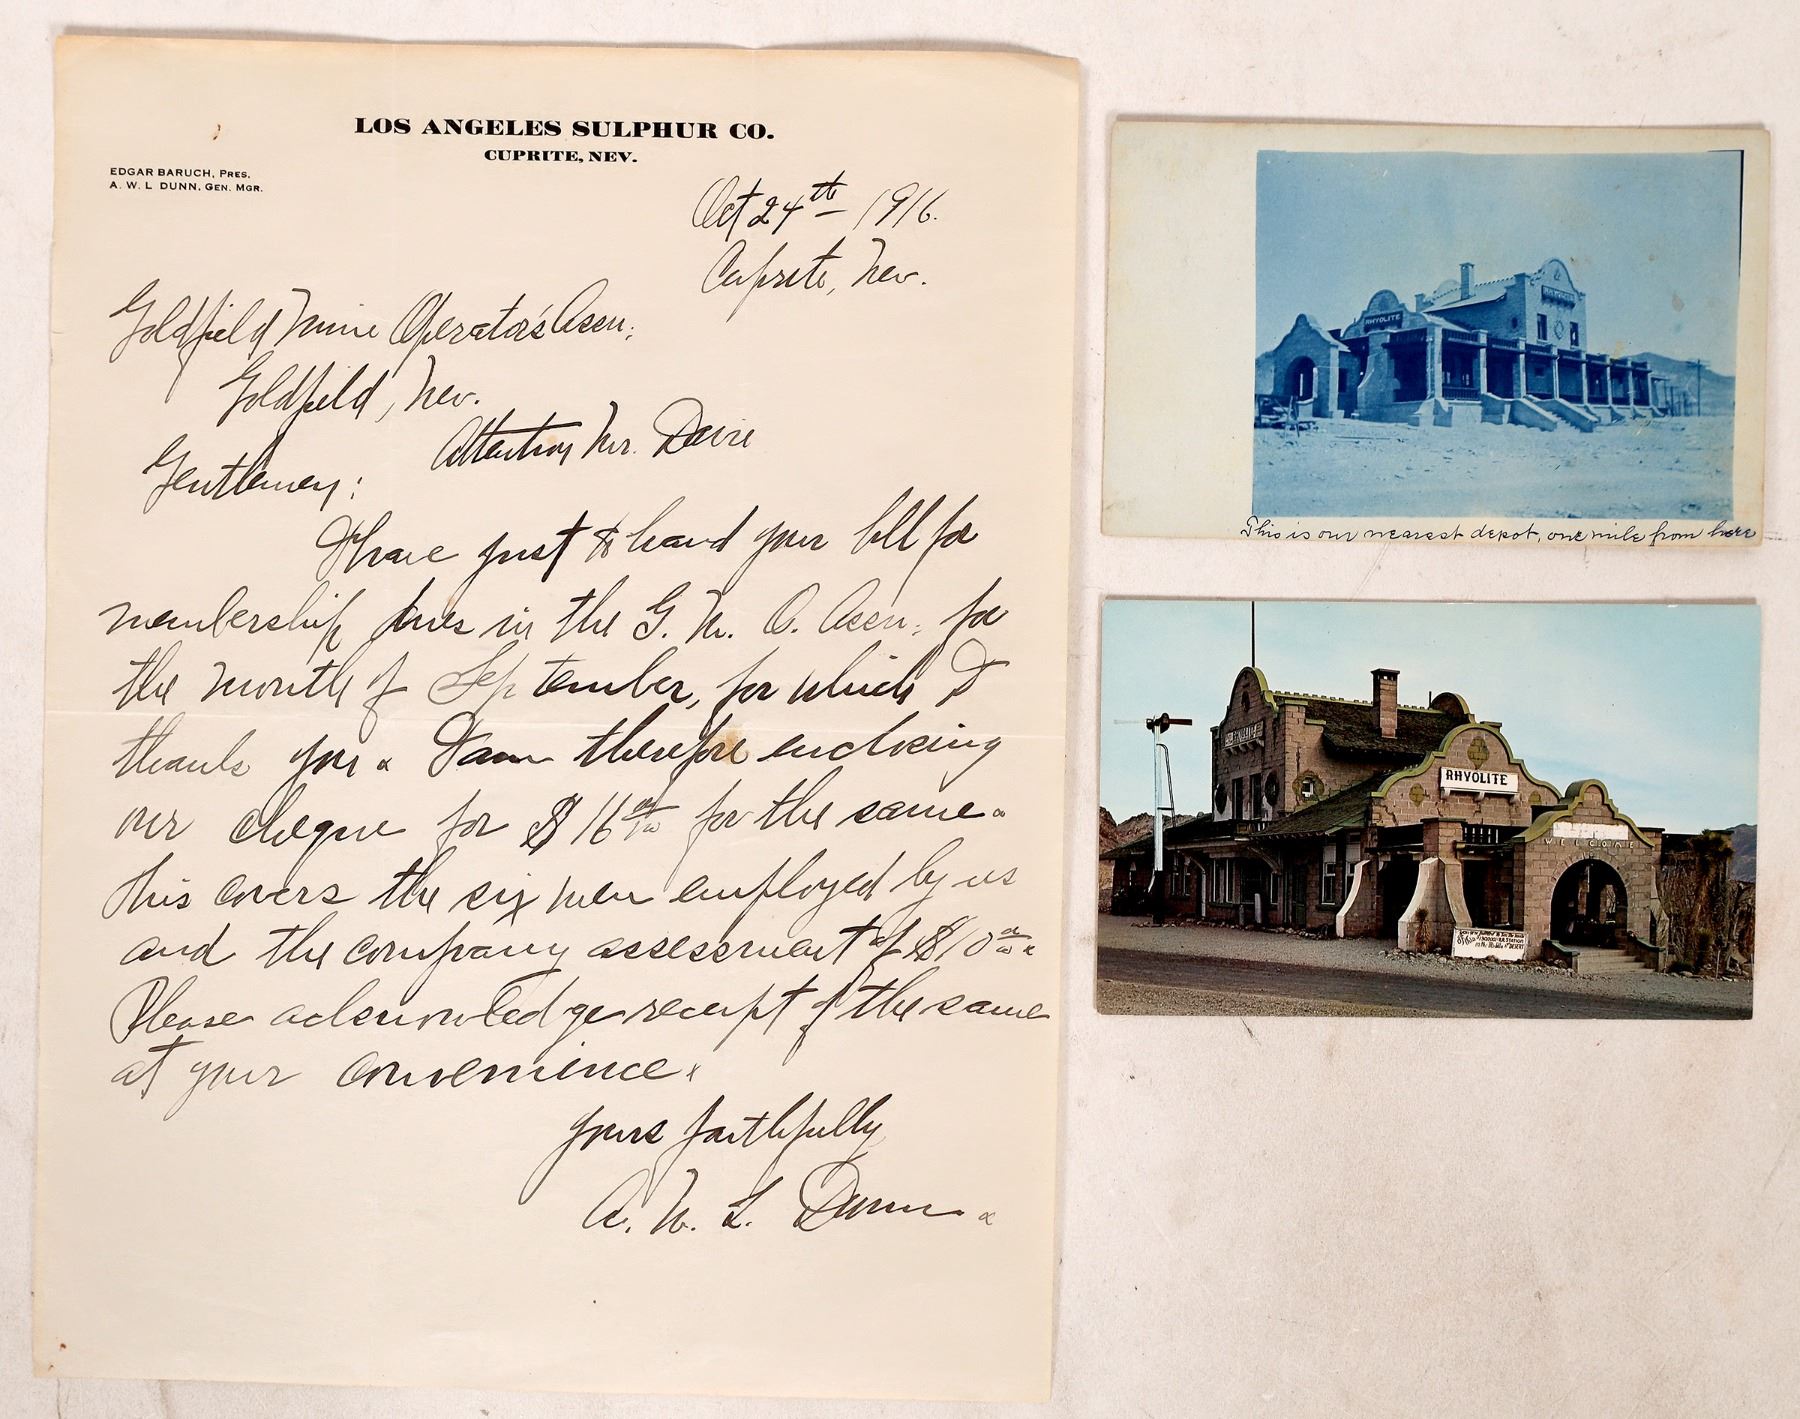 LOS ANGELES SULPHUR CO.
CUPRITE, NEV.
EDGAR BARUCH, PRES.
A. W. L DUNN, GEN. MGR.
Oct 24th 1916.
Cuprite, Nev.
Goldfield Mine Operator's Assn;
Goldfield, Nev.
Attention Mr. Davie
Gentlemen:
I have just to hand your bill for
membership dues in the G. M. O. Assn; for
the month of September, for which I
thank you. I am therefore enclosing
our cheque for $16 00/100 for the same.
This covers the six men employed by us
and the company assessment of $10 00/100.
Please acknowledge receipt of the same
at your convenience.
Yours faithfully
A. W. L. Dunn.
RHYOLITE
RHYOLITE
This is our nearest depot, one mile from here
RHYOLITE
RHYOLITE
WELCOME